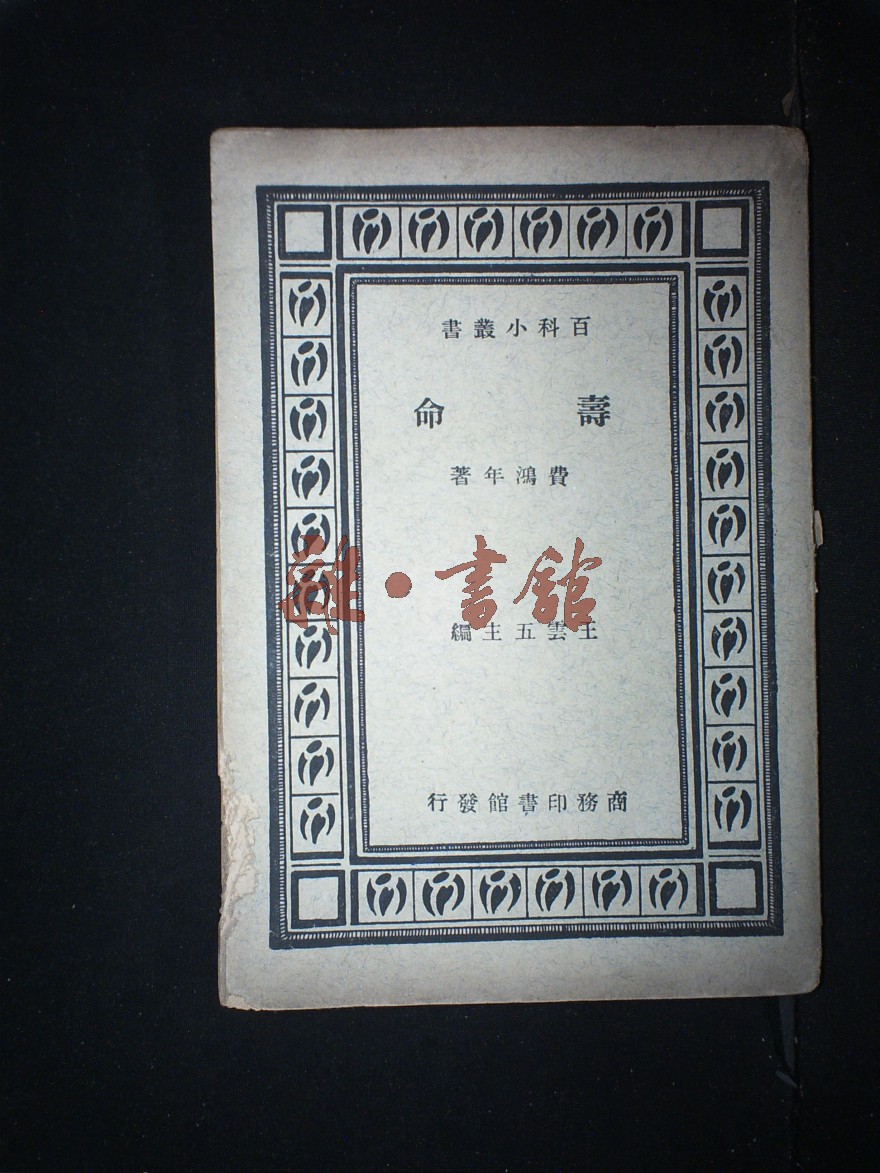 百科小叢書
壽命
費鴻年著
雜·書館
王雲五主編
商務印書館發行